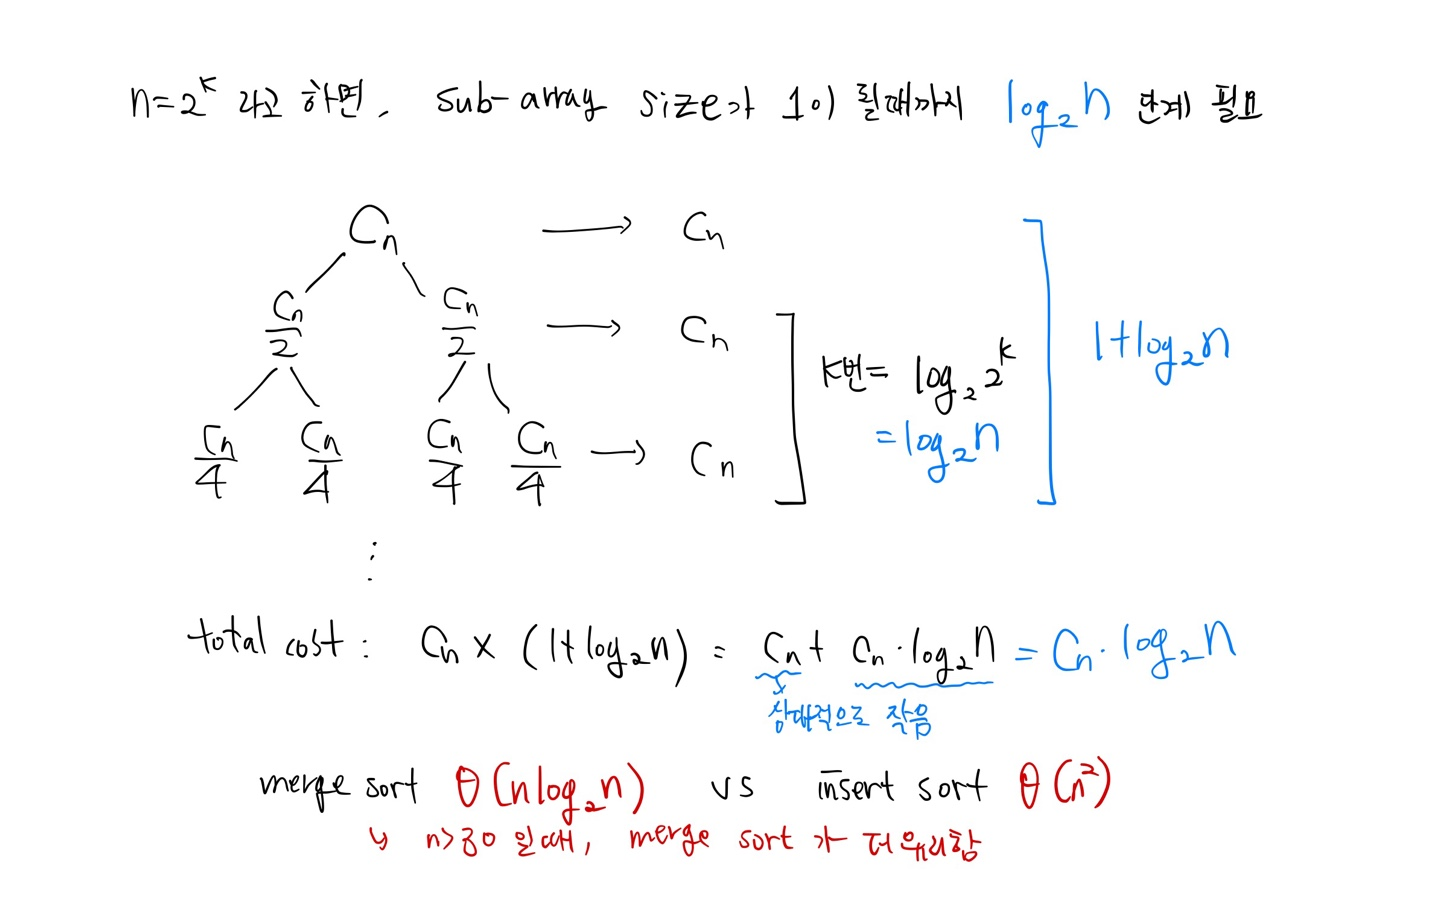 n=2^k 라고 하면, sub-array size가 1이 될때까지 log₂n 단계 필요
Cn → Cn
Cn/2 Cn/2 → Cn
K번= log₂2^k
=log₂n
1+log₂n
Cn/4 Cn/4 Cn/4 Cn/4 → Cn
⋮
total cost : Cn × (1+log₂n) = Cn + Cn·log₂n = Cn·log₂n
상대적으로 작음
merge sort θ(nlog₂n) vs insert sort θ(n²)
↳ n>30 일때, merge sort 가 더 유리함